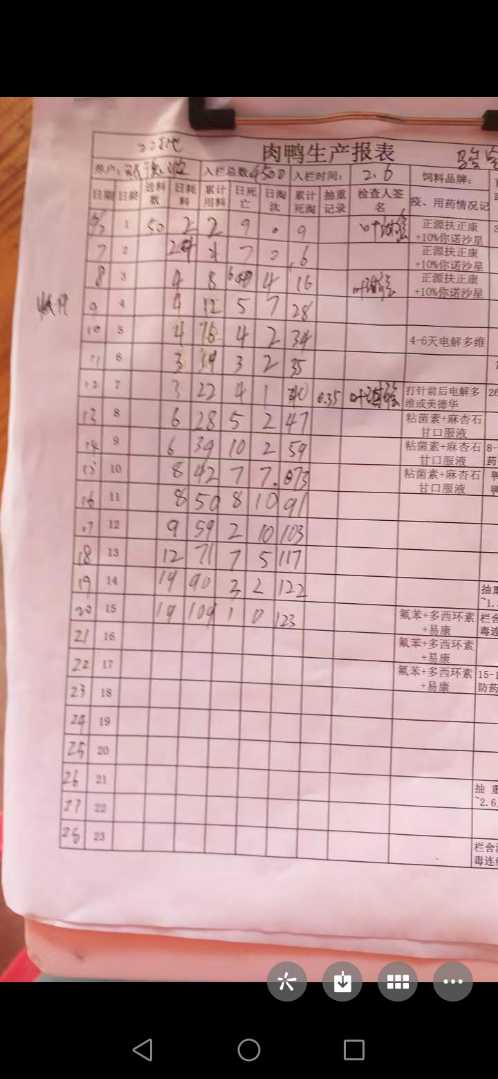 肉鸭生产报表
养户: 入栏总数 4500 入栏时间: 2.6 饲料品牌:
日期 日龄 进料数 日耗料 累计用料 日死亡 日淘汰 累计死淘 抽重记录 检查人签名 疫、用药情况记
1 50 2 2 9 0 9 正源扶正康+10%你诺沙星
7 2 7 正源扶正康+10%你诺沙星
8 3 4 8 4 16 正源扶正康+10%你诺沙星
9 4 4 12 5 7 28
10 5 4 16 4 2 34 4-6天电解多维
11 6 3 19 3 2 35
12 7 3 22 4 1 40 0.35 打针前后电解多维或美德华
13 8 6 28 5 2 47 粘菌素+麻杏石甘口服液
14 9 6 39 10 2 59 粘菌素+麻杏石甘口服液
15 10 8 42 7 7 73 粘菌素+麻杏石甘口服液
16 11 8 50 8 10 91
17 12 9 59 2 10 103
18 13 12 71 7 5 117
19 14 19 90 3 2 122
20 15 19 109 1 0 123 氟苯+多西环素+易康
21 16 氟苯+多西环素+易康
22 17 氟苯+多西环素+易康
23 18
24 19
25 20
26 21
27 22
28 23